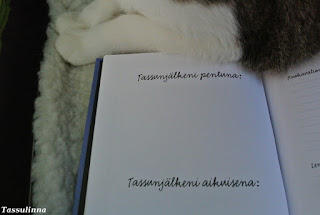 Tassunjälkeni pentuna:
Tassunjälkeni aikuisena:
Tassulinna